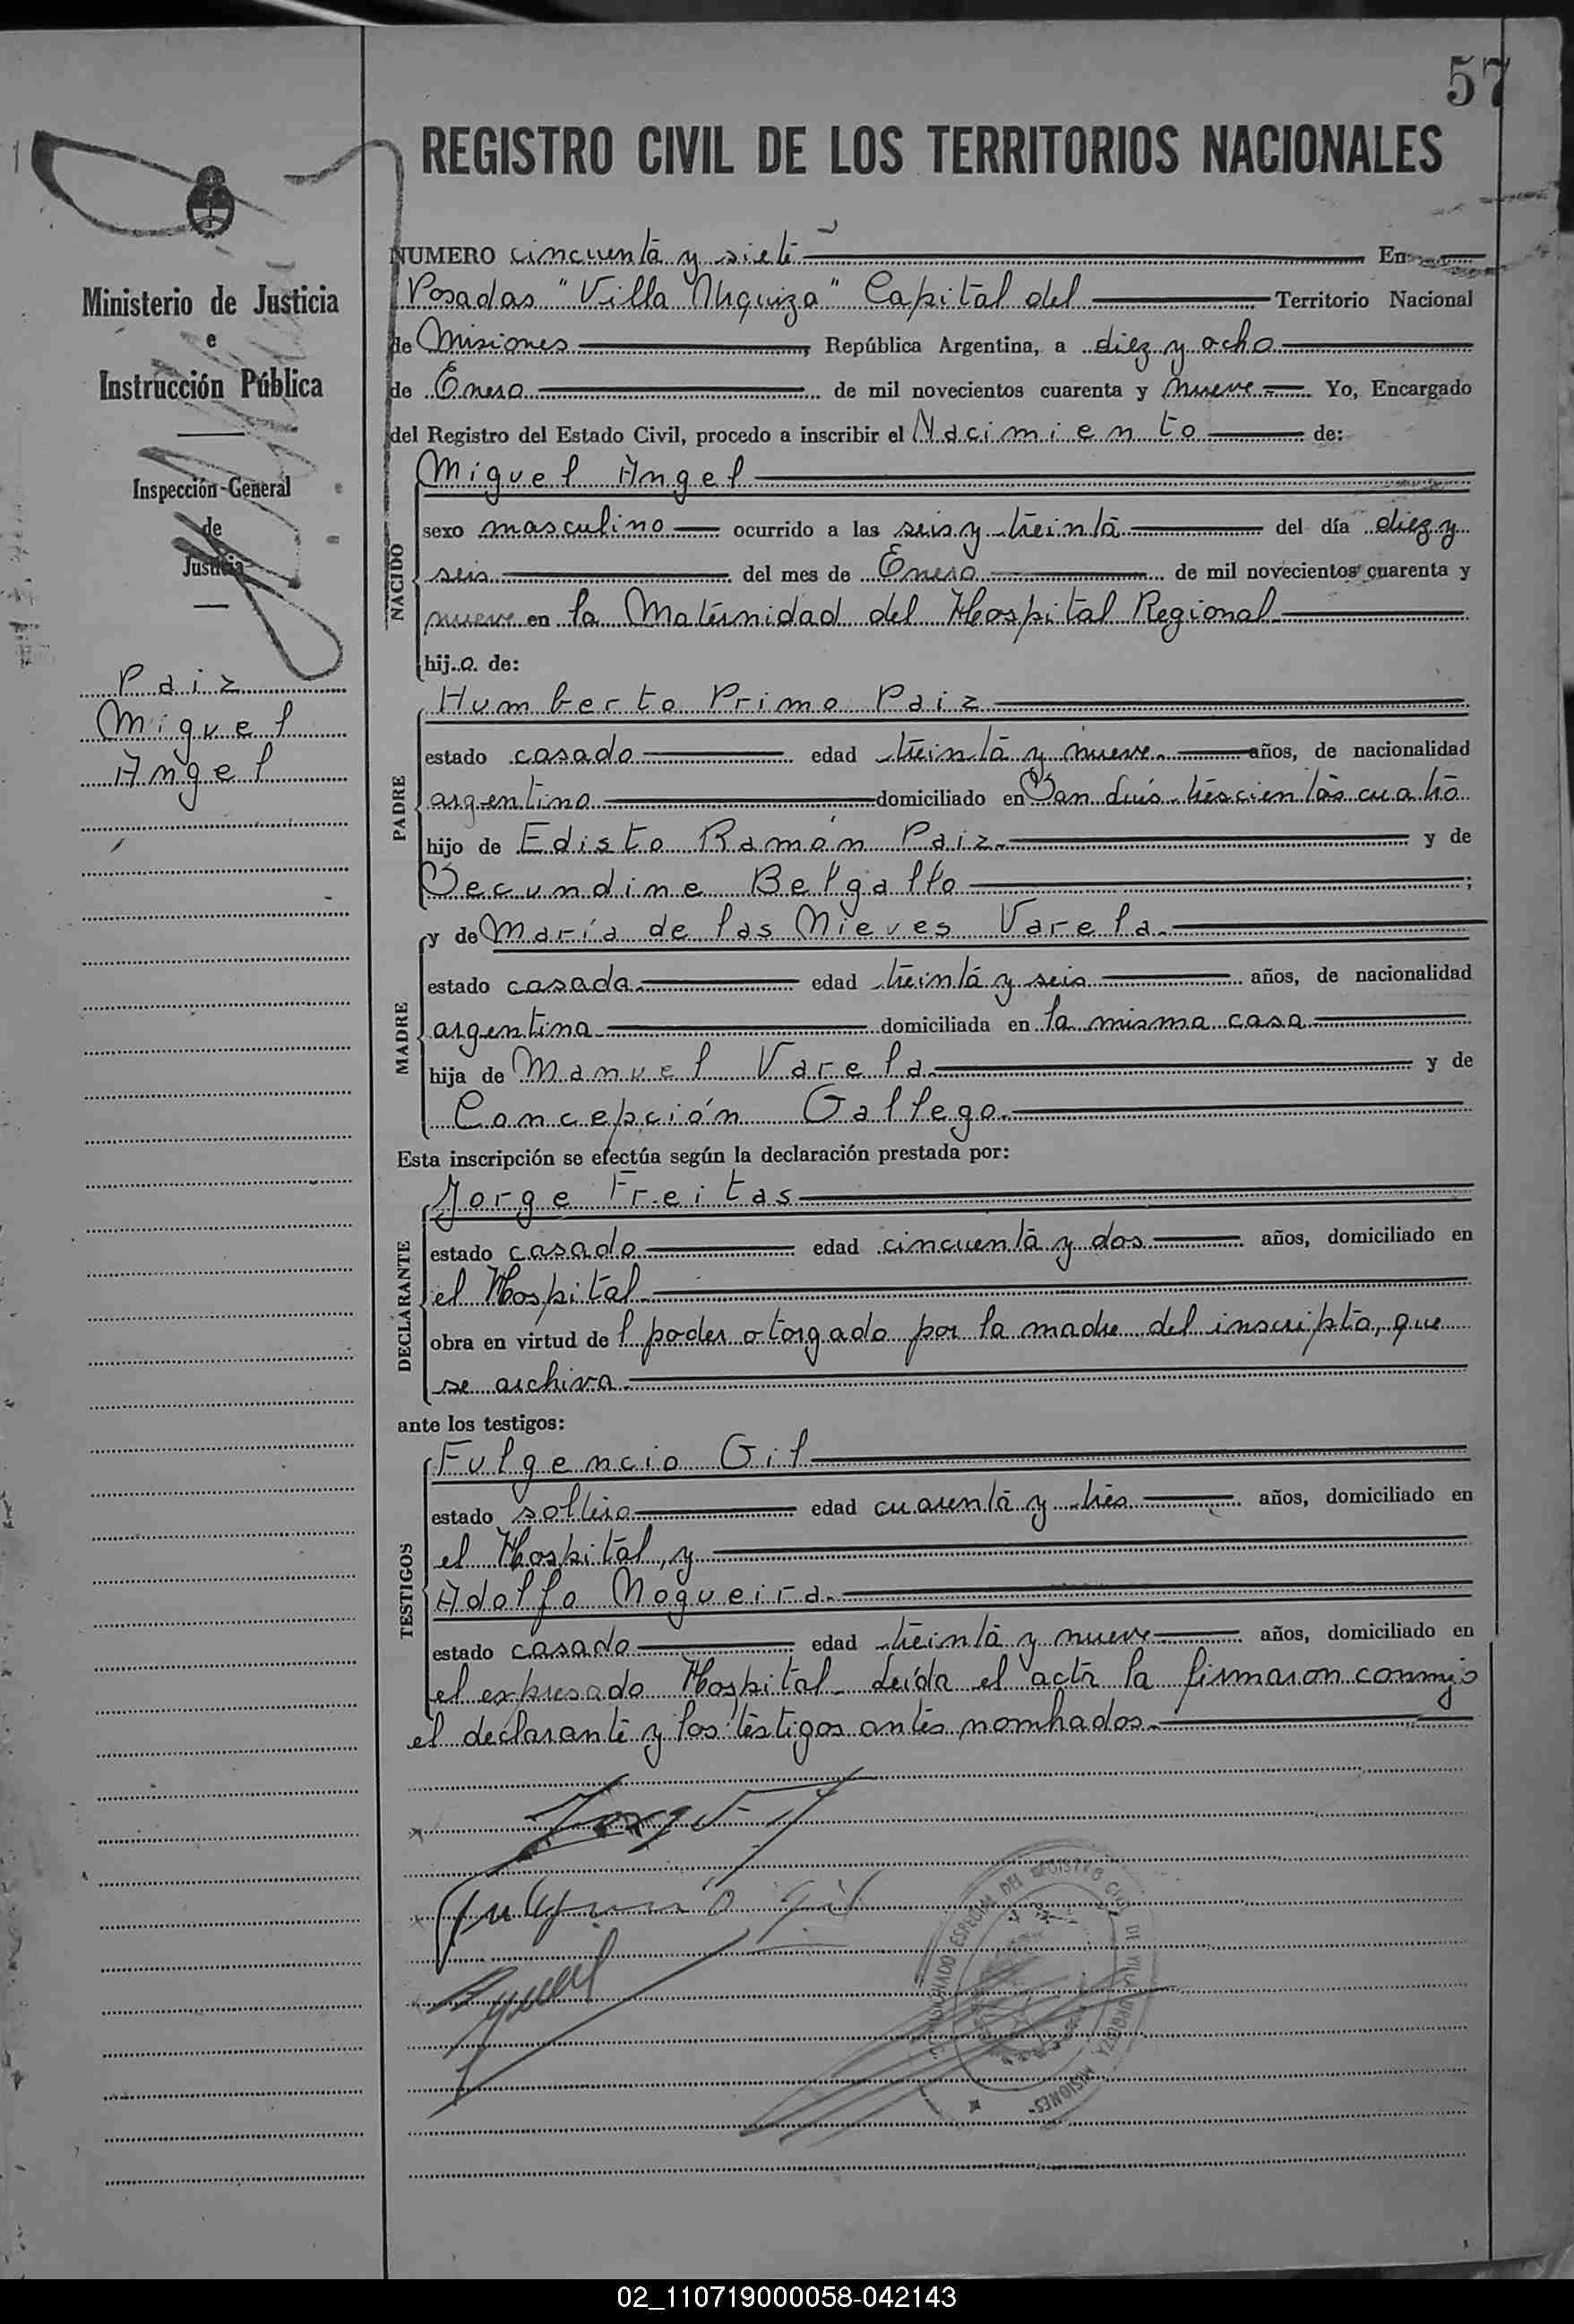 57
REGISTRO CIVIL DE LOS TERRITORIOS NACIONALES
Ministerio de Justicia
e
Instrucción Pública
Inspección General
de
Justicia
Paiz
Miguel
Angel
NUMERO cincuenta y siete En
Posadas "Villa Urquiza" Capital del Territorio Nacional
de Misiones, República Argentina, a diez y ocho
de Enero de mil novecientos cuarenta y nueve Yo, Encargado
del Registro del Estado Civil, procedo a inscribir el Nacimiento de:
NACIDO
Miguel Angel
sexo masculino ocurrido a las seis y treinta del día diez y
seis del mes de Enero de mil novecientos cuarenta y
nueve en la Maternidad del Hospital Regional
hijo de:
PADRE
Humberto Primo Paiz
estado casado edad treinta y nueve años, de nacionalidad
argentino domiciliado en San Luis trescientos cuatro
hijo de Edisto Ramón Paiz y de
Secundine Belgallo;
MADRE
y de María de las Nieves Varela
estado casada edad treinta y seis años, de nacionalidad
argentina domiciliada en la misma casa
hija de Manuel Varela y de
Concepción Gallego
Esta inscripción se efectúa según la declaración prestada por:
DECLARANTE
Jorge Freitas
estado casado edad cincuenta y dos años, domiciliado en
el Hospital
obra en virtud del poder otorgado por la madre del inscripto, que
se archiva
ante los testigos:
TESTIGOS
Fulgencio Gil
estado soltero edad cuarenta y tres años, domiciliado en
el Hospital, y
Adolfo Nogueira
estado casado edad treinta y nueve años, domiciliado en
el expresado Hospital. Leída el acta la firmaron conmigo
el declarante y los testigos antes nombrados.
Fulgencio Gil
ESPECIAL DEL REGISTRO CIVIL DE VILLA URQUIZA MISIONES
02_110719000058-042143